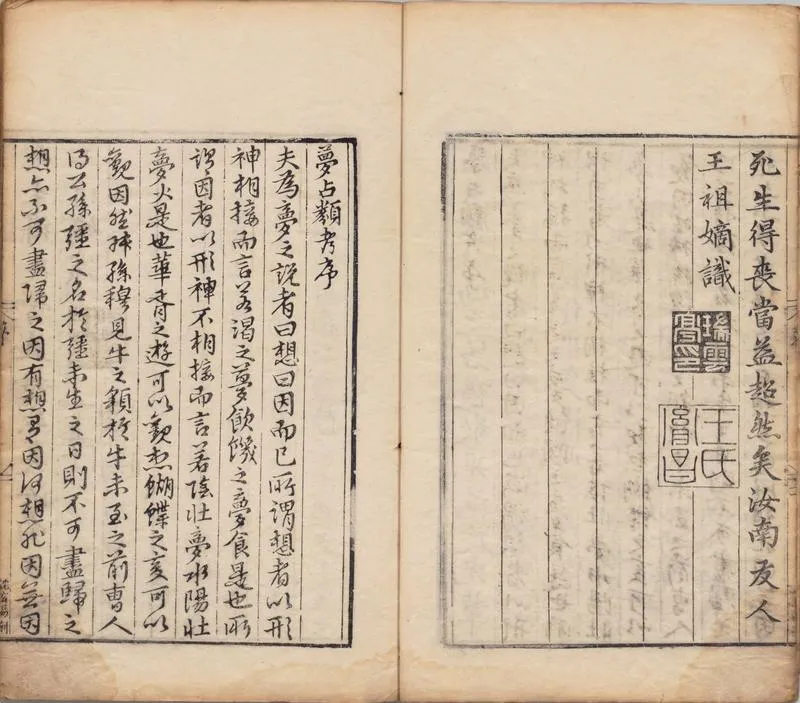 死生得喪當益超然矣汝南友人
王祖嫡識
王氏胤昌
夢占類考序
夫為夢之說者曰想曰因而已所謂想者以形
神相接而言若渴之夢飲饑之夢食是也所
謂因者以形神不相接而言若陰壯夢水陽壯
夢火是也華胥之遊可以觀想蝴蝶之変可以
觀因然叔孫穆見牛之䫉於牛未至之前曹人
得公孫彊之名於彊未生之日則不可盡歸之
想亦不可盡歸之因有想有因何想非因無因
序